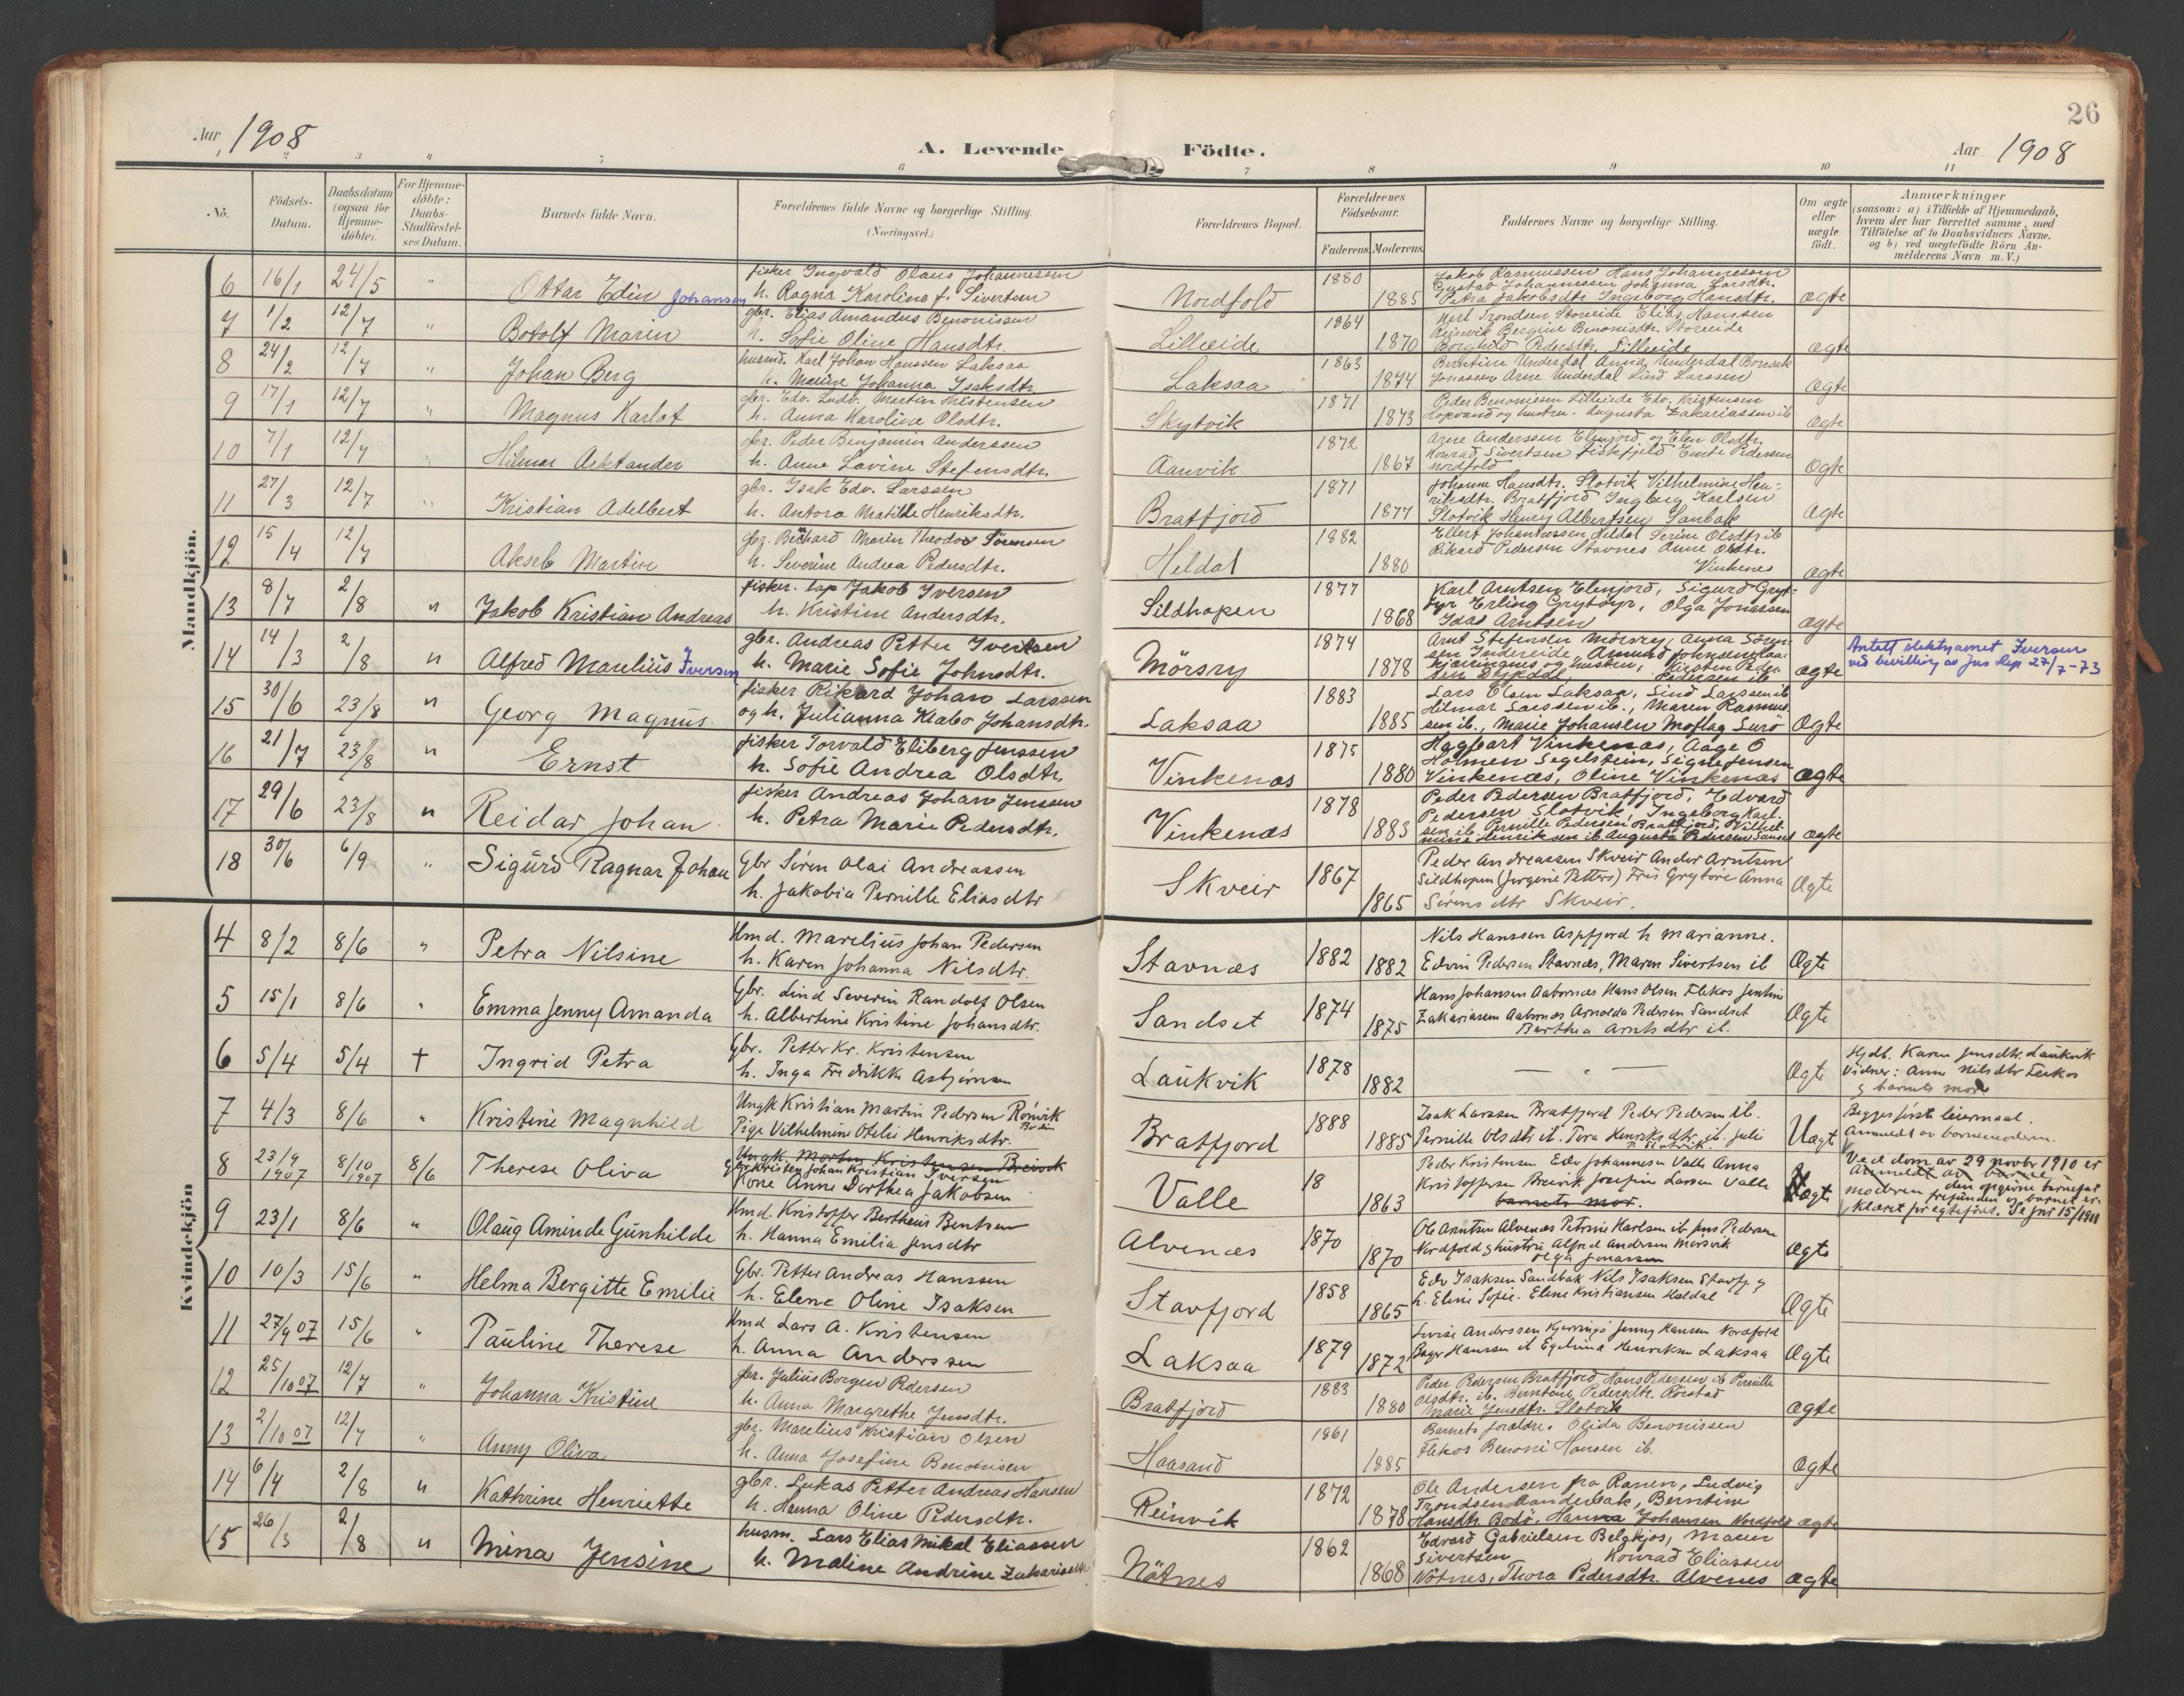 26
Aar 1908
A. Levende Födte.
Aar 1908
2 3 4 5 6 7 8 9 10 11
No.
Födsels-Datum.
Daabsdatum (ogsaa for Hjemme-döbte).
For Hjemme-döbte: Daabs-Stadfæstelses Datum.
Barnets fulde Navn.
Forældrenes fulde Navne og borgerlige Stilling. (Næringsvei.)
Forældrenes Bopæl.
Forældrenes Födselsaar.
Faderens. Moderens.
Faddernes Navne og borgerlige Stilling.
Om ægte eller uægte födt.
Anmærkninger
(saasom: a) i Tilfælde af Hjemmedaab, hvem der har forrettet samme, med Tilföielse af to Daabsvidners Navne, og b) ved uægtefödte Börn Anmelderens Navn m. V.)
Mandkjön.
6 16/1 24/5 " Ottar Edin Johansen
fisker Ingvald Olaus Johannessen
h. Ragna Karoline f. Sivertsen
Nordfold 1880 1885
Jakob Rasmussen Hans Johannessen
Gustav Johannessen Johanna Larsdtr.
Petra Jakobsdtr Ingeborg Hansdtr. ægte
7 1/2 12/7 " Botolf Marin
gbr. Elias Amandus Benonissen
h. Sofie Oline Hansdtr.
Lilleeide 1864 1870
Trondsen Storeide Elias Hanssen
Reinvik Bergine Benonisdtr. Storeide
Borghild Pedersdtr. Lilleeide ægte
8 24/2 12/7 " Johan Berg
husmd. Karl Johan Hanssen Laksaa
h. Marine Johanna Isaksdtr
Laksaa 1863 1874
Berntine Underdal Anna Underdal
Jonassen Arne Underdal Lind Larssen ægte
9 17/1 12/7 " Magnus Karlot
gbr. Edv. Ludv. Martin Kristensen
h. Anna Karoline Olsdtr.
Skytvik 1871 1873
Peder Benonissen Lilleeide Edv. Kristensen
og hustru. Augusta Zakariassen ib ægte
10 7/1 12/7 Hilmar Arktander
gbr. Peder Benjamin Anderssen
h. Anne Lovine Stefensdtr.
Aanvik 1872 1867
Arne Anderssen Elvfjord og Elen Olsdtr.
Konrad Sivertsen Fiskfjeld Emte Pedersen
Nordfold ægte
11 27/3 12/7 " Kristian Adelbert
gbr. Isak Edv. Larssen
h. Antora Matilde Henriksdtr.
Bratfjord 1871 1877
Johanne Hansdtr. Slotvik Vilhelmine Hen-
riksdtr. Bratfjord Ingberg Karlsen
Slotvik Henry Albertsen Sanbak ægte
12 15/4 12/7 Akseb Martin
gbr. Bernhard Marin Theodor Sörensen
h. Severine Andrea Pedersdtr.
Heldal 1882 1880
Ellert Johannessen Heldal Serine Olsdtr ib
Rikard Pedersen Stavnes Anne Olsdtr.
Vinkenes ægte
13 8/7 2/8 " Jakob Kristian Andreas
fisker. lap Jakob Iversen
h. Kristine Andersdtr.
Sildhopen 1877 1868
Karl Arntsen Elvfjord, Sigurd Gryt-
öyr Erling Grytöyr, Olga Jonassen
Arntsen ægte
14 14/3 2/8 " Alfred Marelius Iversen
gbr. Andreas Petter Ivertsen
h. Marie Sofie Johnsdtr.
Mörsry 1874 1878
Arnt Stefensen Mörsry, Anna Sören-
sen Indereide, Amund Johnsen
Kjærringnes og hustru, Kirsten Peder
ægte
Antatt slektsnavnet Iversen
ved bevilling av Jus Dep 27/7-73
15 30/6 23/8 " Georg Magnus
fisker Rikard Johan Larssen
og h. Julianna Klabo Johansdtr.
Laksaa 1883 1885
Lars Olsen Laksaa, Lind Larssen ib
Hilmar Larssen ib., Maren Rasmus-
sen ib., Marie Johansen Moflag Lurö ægte
16 21/7 23/8 " Ernst
fisker Torvald Eliberg Jenssen
h. Sofie Andrea Olsdtr.
Vinkenæs 1875 1880
Hagbart Vinkenæs, Aage O
Holmen Segelstein, Signe Jensen
Vinkenæs, Oline Vinkenæs ægte
17 29/6 23/8 " Reidar Johan
fisker Andreas Johan Jenssen
h. Petra Marie Pedersdtr.
Vinkenæs 1878 1883
Peder Pedersen Bratfjord, Edvard
Pedersen Slotvik, Ingeborg Karl-
sen ib. Pernille Pedersen, Bratfjord, Vilhel-
mine Henriksen ib Augusta Pedersen ægte
18 30/6 6/9 " Sigurd Ragnar Johan
Gbr Sören Olai Andreassen
h. Jakobia Pernille Eliasdtr
Skveir 1867 1865
Peder Andreassen Skveir Ander Arntsen
Sildhopen (Jorgine Petters) Friis Grytöire Anna
Sörensdtr Skveir. Ægte
Kvindekjön
4 8/2 8/6 " Petra Nilsine
Hmd. Marelius Johan Pedersen
h. Karen Johanna Nilsdtr.
Stavnæs 1882 1882
Nils Hanssen Aspfjord h Marianne.
Edvin Pedersen Stavnæs, Maren Sivertsen ib Ægte
5 15/1 8/6 " Emma Jenny Amanda
Gbr. Lind Severin Randolf Olsen
h. Albertine Kristine Johansdtr.
Sandset 1874 1875
Hans Johansen Aabornæs Hans Olsen Flekos Jentine
Zakariassen Aabornæs Arnolda Pedersen Sandset
Berthea Arntsdtr ib. Ægte
6 5/4 5/4 † Ingrid Petra
Gbr. Petter Kr. Kristensen
h. Inga Fredrikke Asbjörnsen
Laukvik 1878 1882
— " — Ægte
Hjdb. Karen Jensdtr. Laukvik
Vidner: Anne Nilsdtr Flekos
g barnets mor
7 4/3 8/6 " Kristine Magnhild
Ungk Kristian Martin Pedersen Rönvik Bodin
Pige Vilhelmine Otelie Henriksdtr.
Bratfjord 1888 1885
Isak Larssen Bratfjord Peder Pedersen ib.
Pernille Olsdtr ib. Tora Henriksdtr. ib. Juli
Slotvik. Uægt
Begges förste leiermaal.
Anmeldt av barnemoderen.
8 23/9 1907 8/10 1907 8/6 Therese Oliva
Ungk. Morten Kristensen Breivik
Gbr Kristen Johan Kristian Iversen
Kone Anne Dorthea Jakobsen
Valle 18 1863
Peder Kristensen Edv Johannesen Valle Anna
Kristoffersen Breivik Josefine Larsen Valle
barnets mor. Ægte
Ved dom av 29 novbr 1910 er
Anmeldt av barne
moderen den opgivne barnefar
frifunden og barnet er-
klæret for ægtefödt. Se jnr 15/1911
9 23/1 8/6 " Olaug Aminde Gunhilde
Hmd. Kristoffer Bertheus Bentsen
h. Hanna Emilia Jensdtr
Alvenæs 1870 1870
Ole Arntsen Alvenæs Petrine Karlsen ib Jens Pedersen
Nordfold g hustru Alfred Andersen Mörsvik
Olga Jonassen Ægte
10 10/3 15/6 " Helma Bergitte Emilie
Gbr. Petter Andreas Hanssen
h. Elene Oline Isaksen
Stavfjord 1858 1865
Edv Isaksen Sandbak Nils Isaksen Stavfj. g
h. Eline Sofie. Elene Kristiansen Heldal Ægte
11 27/9 07 15/6 " Pauline Therese
Hmd Lars A. Kristensen
h. Anna Anderssen
Laksaa 1879 1872
Lovise Anderssen Kjerringö Jenny Hansen Nordfold
Hanssen ib Egeline Henriksen Laksaa Ægte
12 25/10 07 12/7 " Johanna Kristine
gbr. Julius Borgen Pedersen
h. Anna Margrethe Jensdtr.
Bratfjord 1883 1880
Peder Pedersen Bratfjord, Hans Pedersen ib Pernille
Olsdtr. ib. Berntine Pedersdtr. Rörstad
Marie Jensdtr. Slotvik ægte
13 2/10 07 12/7 " Anny Oliva
gbr. Marelius Kristian Olsen
h. Anna Josefine Benonisen
Haasand 1861 1885
Barnets forældre. Olida Benonissen
Flekos Benoni Hansen ib. ægte
14 6/4 2/8 " Kathrine Henriette
gbr. Lukas Petter Andreas Hansen
h. Hanna Oline Pedersdtr.
Reinvik 1872 1878
Ole Andersen fra Ranen, Ludvig
Trondsen Sanderbak, Berntine
Hansdtr Bodö, Hanna Johansen Nordfold ægte
15 26/3 2/8 " Mina Jensine
husm. Lars Elias Mikal Eliassen
h. Maline Andrine Zakariasdtr
Nötnes 1862 1868
Edvard Gabrielsen Belgkjos, Maren
Sivertsen, Konrad Eliassen
Nötnes, Thora Pedersdtr. Alvenes ægte